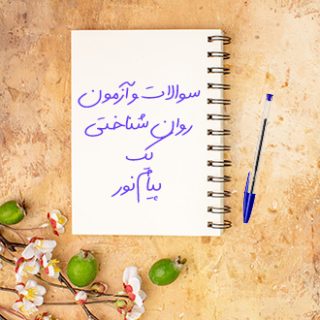 سوالات و آزمون
روان شناختی
یک
پیام نور